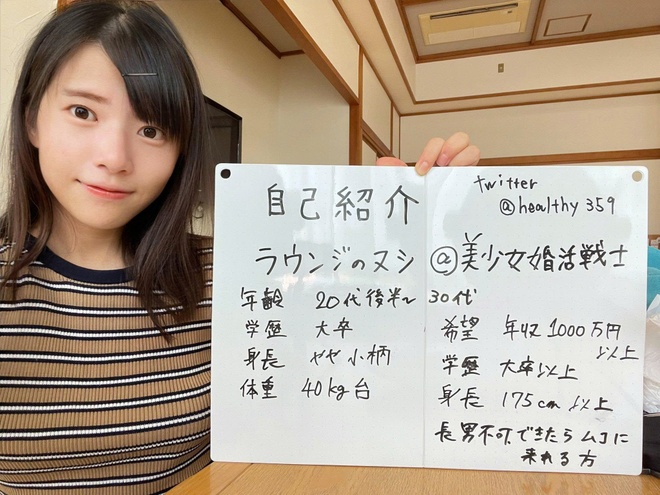 自己紹介
twitter
@healthy359
ラウンジのヌシ@美少女婚活戦士
年齢 20代後半~30代
学歴 大卒
身長 やや小柄
体重 40kg台
希望 年収1000万円
以上
学歴 大卒以上
身長 175cm以上
長男不可.できたらムコに
来れる方